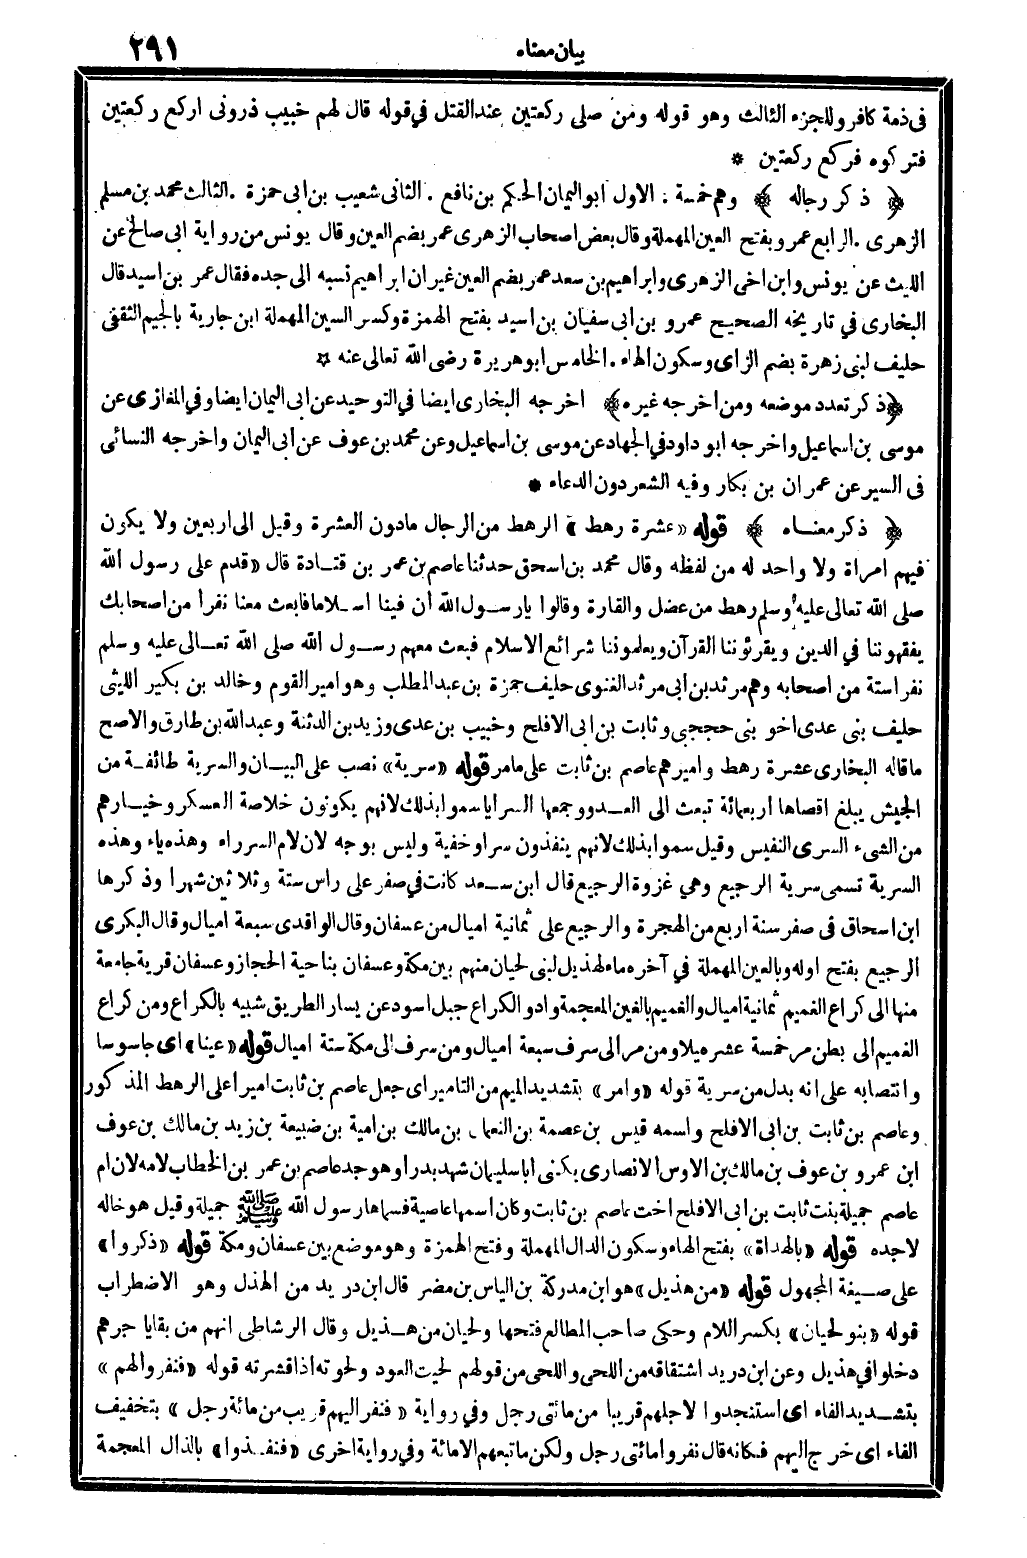 بيان معناه ٢٩١
فى ذمة كافر وللجزء الثالث وهو قوله ومن صلى ركعتين عند القتل في قوله قال لهم خبيب ذرونى اركع ركعتين
فتركوه فركع ركعتين *
﴿ ذكر رجاله ﴾ وهم خمسة : الاول ابو اليمان الحكم بن نافع . الثانى شعيب بن ابى حمزة . الثالث محمد بن مسلم
الزهرى . الرابع عمرو بفتح العين المهملة وقال بعض اصحاب الزهرى عمر بضم العين وقال يونس من رواية ابى صالح عن
الليث عن يونس وابن اخى الزهرى وابراهيم بن سعد عمر بضم العين غير ان ابراهيم نسبه الى جده فقال عمر بن اسيد قال
البخارى في تاريخه الصحيح عمرو بن ابى سفيان بن اسيد بفتح الهمزة وكسر السين المهملة ابن جارية بالجيم الثقفى
حليف لبنى زهرة بضم الزاى وسكون الهاء . الخامس ابو هريرة رضى الله تعالى عنه ☆
﴿ ذكر تعدد موضعه ومن اخرجه غيره ﴾ اخرجه البخارى ايضا في التوحيد عن ابى اليمان ايضا وفي المغازى عن
موسى بن اسماعيل واخرجه ابو داود في الجهاد عن موسى بن اسماعيل وعن محمد بن عوف عن ابى اليمان واخرجه النسائى
فى السير عن عمران بن بكار وفيه الشعر دون الدعاء *
﴿ ذكر معناه ﴾ قوله «عشرة رهط» الرهط من الرجال مادون العشرة وقيل الى اربعين ولا يكون
فيهم امرأة ولا واحد له من لفظه وقال محمد بن اسحق حدثنا عاصم بن عمر بن قتادة قال «قدم على رسول الله
صلى الله تعالى عليه وسلم رهط من عضل والقارة وقالوا يارسول الله أن فينا اسلاما فابعث معنا نفرا من اصحابك
يفقهوننا في الدين ويقرئوننا القرآن ويعلموننا شرائع الاسلام فبعث معهم رسول الله صلى الله تعالى عليه وسلم
نفرا ستة من اصحابه وهم مرثد بن ابى مرثد الغنوى حليف حمزة بن عبد المطلب وهو امير القوم وخالد بن بكير الليثى
حليف بنى عدى اخو بنى حججبى وثابت بن ابى الافلح وخبيب بن عدى وزيد بن الدثنة وعبد الله بن طارق والاصح
ماقاله البخارى عشرة رهط واميرهم عاصم بن ثابت على مامر قوله «سرية» نصب على البيان والسرية طائفة من
الجيش يبلغ اقصاها أربعمائة تبعث الى العدو وجمعها السرايا سموا بذلك لانهم يكونون خلاصة العسكر وخيارهم
من الشىء السرى النفيس وقيل سموا بذلك لانهم ينفذون سرا وخفية وليس بوجه لان لام السر راء وهذه ياء وهذه
السرية تسمى سرية الرجيع وهي غزوة الرجيع قال ابن سعد كانت في صفر على راس ستة وثلاثين شهرا وذكرها
ابن اسحاق فى صفر سنة اربع من الهجرة والرجيع على ثمانية اميال من عسفان وقال الواقدى سبعة اميال وقال البكرى
الرجيع بفتح اوله وبالعين المهملة في آخره ماء لهذيل لبنى لحيان منهم بين مكة وعسفان بناحية الحجاز وعسفان قرية جامعة
منها الى كراع الغميم ثمانية اميال والغميم بالغين المعجمة وادو الكراع جبل اسود عن يسار الطريق شبيه بالكراع ومن كراع
الغميم الى بطن مر خمسة عشر ميلا ومن مر الى سرف سبعة اميال ومن سرف الى مكة ستة اميال قوله «عينا» اى جاسوسا
وانتصابه على انه بدل من سرية قوله «وامر» بتشديد الميم من التامير اى جعل عاصم بن ثابت اميرا على الرهط المذكور
وعاصم بن ثابت بن ابى الافلح واسمه قيس بن عصمة بن النعمان بن مالك بن امية بن ضبيعة بن زيد بن مالك بن عوف
ابن عمرو بن عوف بن مالك بن الاوس الانصارى يكنى ابا سليمان شهد بدرا وهو جد عاصم بن عمر بن الخطاب لامه لان ام
عاصم جميلة بنت ثابت بن ابى الافلح اخت عاصم بن ثابت وكان اسمها عاصية فسماها رسول الله ﷺ جميلة وقيل هو خاله
لاجده قوله «بالهدأة» بفتح الهاء وسكون الدال المهملة وفتح الهمزة وهو موضع بين عسفان ومكة قوله «ذكروا»
على صيغة المجهول قوله «من هذيل» هو ابن مدركة بن الياس بن مضر قال ابن دريد من الهذل وهو الاضطراب
قوله «بنو لحيان» بكسر اللام وحكى صاحب المطالع فتحها ولحيان من هذيل وقال الرشاطى انهم من بقايا جرهم
دخلوا في هذيل وعن ابن دريد اشتقاقه من اللحى واللحى من قولهم لحيت العود ولحوته اذا قشرته قوله «فنفروا لهم»
بتشديد الفاء اى استنجدوا لاجلهم قريبا من مائتى رجل وفي رواية «فنفر اليهم قريب من مائة رجل» بتخفيف
الفاء اى خرج اليهم فكانه قال نفروا مائتى رجل ولكن ماتبعهم الا مائة وفي رواية اخرى «فنفذوا» بالذال المعجمة